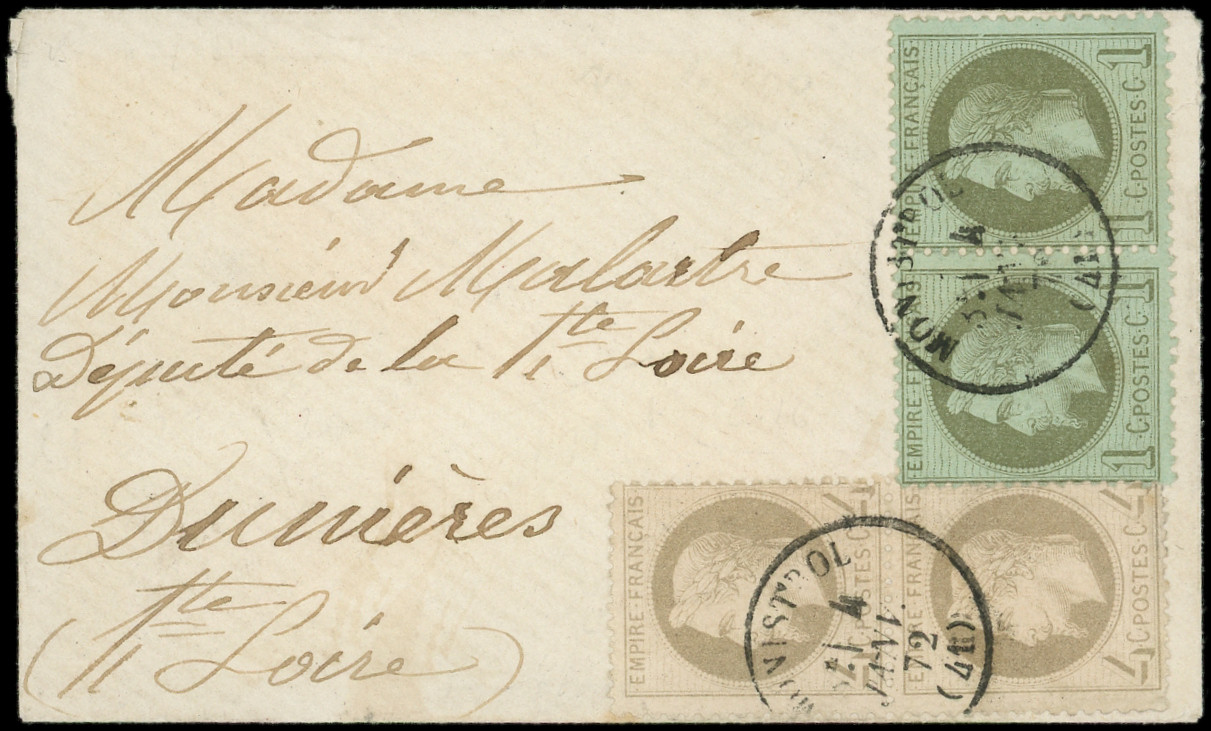 Madame
Monsieur Malartre
Député de la Hte Loire
Dunières
(Hte Loire)
EMPIRE FRANÇAIS
1 C. POSTES. C. 1
EMPIRE FRANÇAIS
1 C. POSTES. C. 1
MONISTROL
4
JANV.
(41)
EMPIRE FRANÇAIS
4 C POSTES C 4
EMPIRE FRANÇAIS
4 C POSTES C 4
MONISTROL
4
JANV.
72
(41)